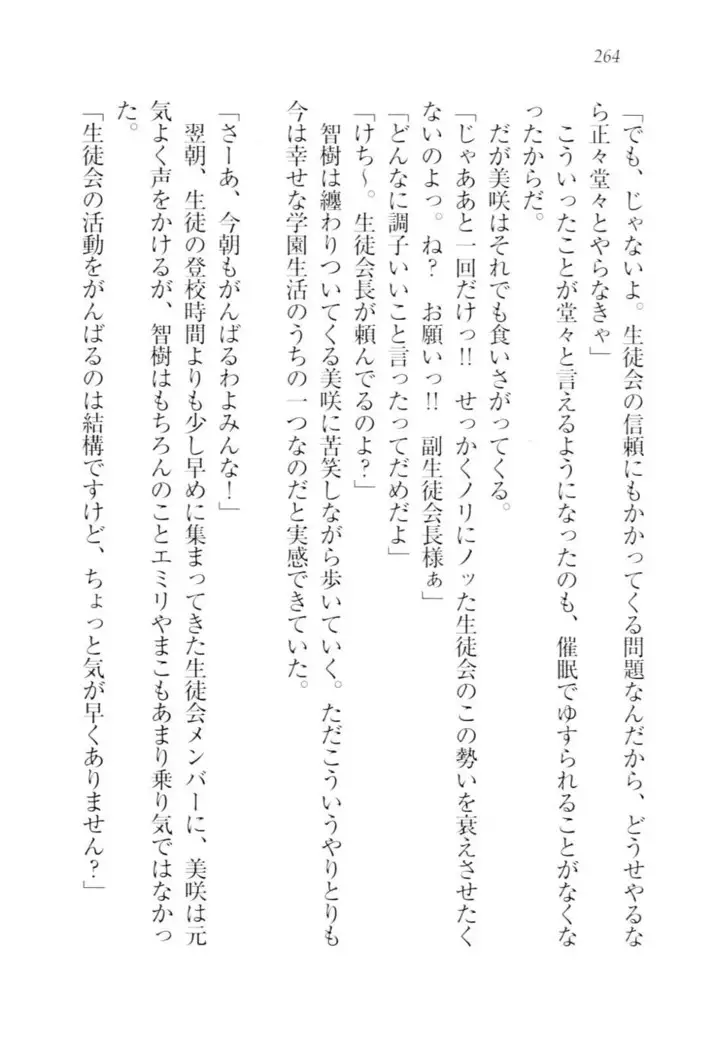 264
「でも、じゃないよ。生徒会の信頼にもかかってくる問題なんだから、どうせやるな
ら正々堂々とやらなきゃ」
こういったことが堂々と言えるようになったのも、催眠でゆすられることがなくな
ったからだ。
だが美咲はそれでも食いさがってくる。
「じゃああと一回だけっ!! せっかくノリにノッた生徒会のこの勢いを衰えさせたく
ないのよっ。ね? お願いっ!! 副生徒会長様ぁ」
「どんなに調子いいこと言ったってだめだよ」
「けち～。生徒会長が頼んでるのよ?」
智樹は纏わりついてくる美咲に苦笑しながら歩いていく。ただこういうやりとりも
今は幸せな学園生活のうちの一つなのだと実感できていた。
「さーあ、今朝もがんばるわよみんな!」
翌朝、生徒の登校時間よりも少し早めに集まってきた生徒会メンバーに、美咲は元
気よく声をかけるが、智樹はもちろんのことエミリやまこもあまり乗り気ではなかっ
た。
「生徒会の活動をがんばるのは結構ですけど、ちょっと気が早くありません?」